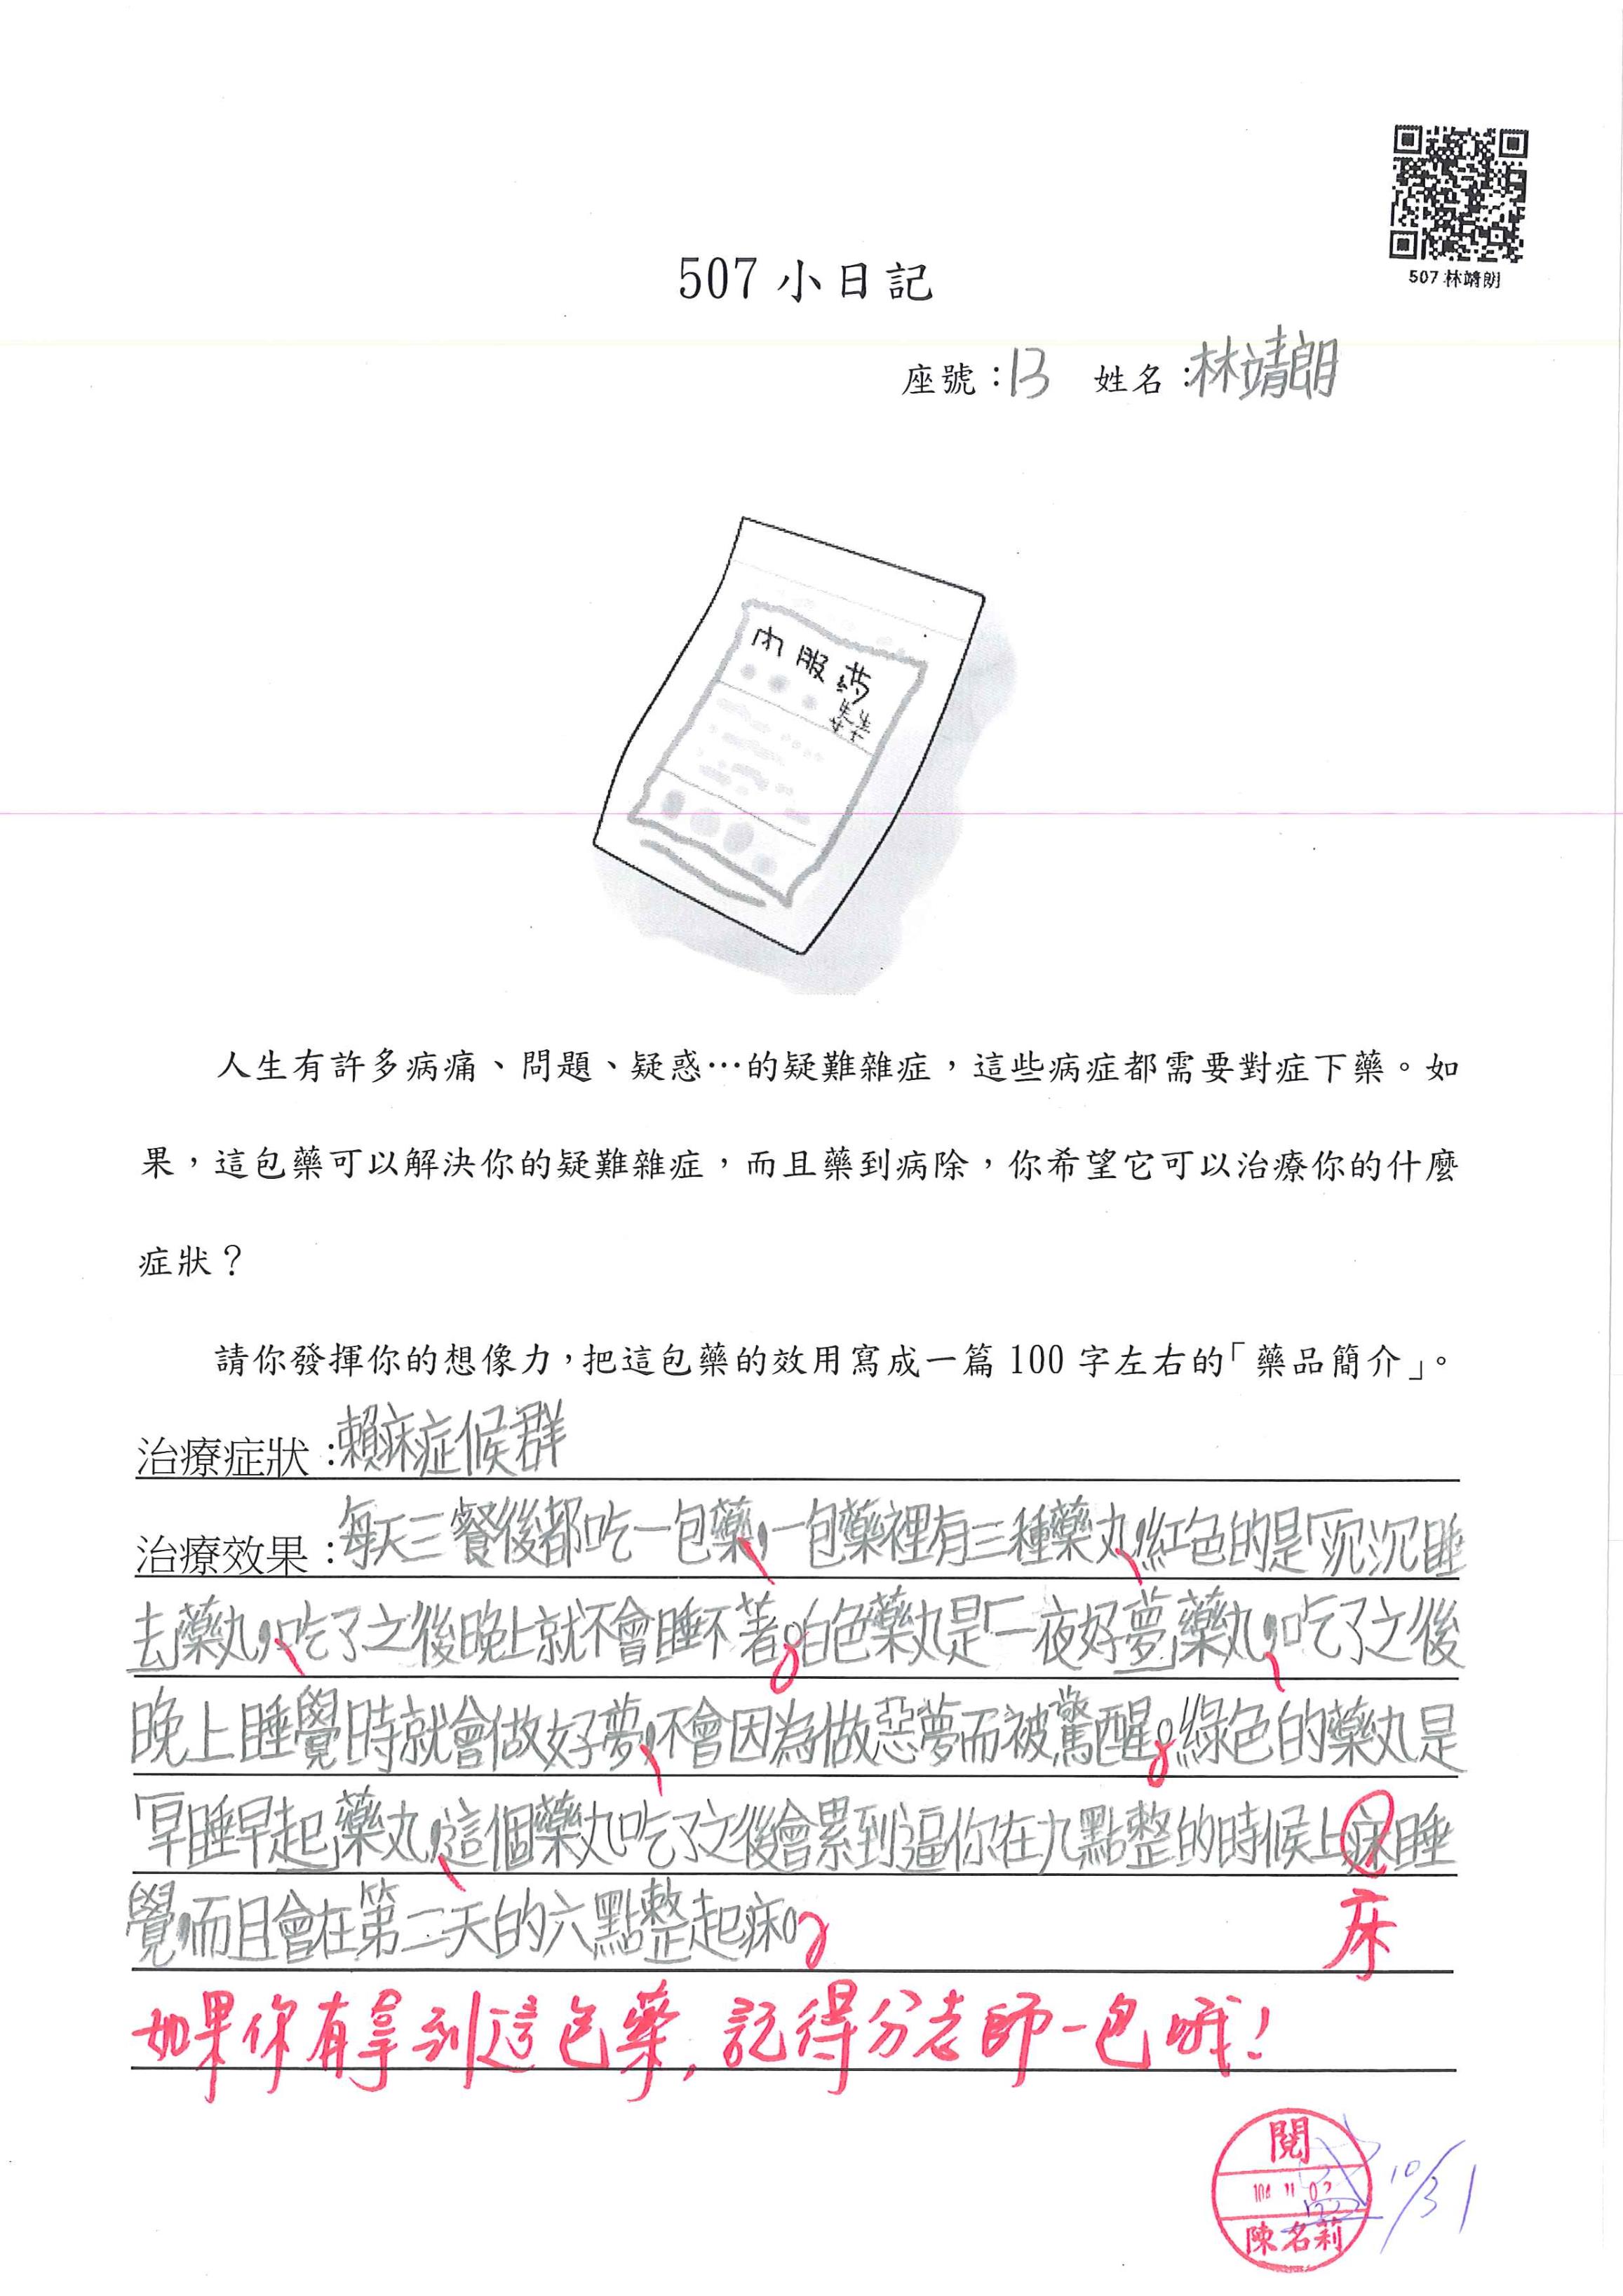 507 林靖朗
507 小日記
座號：13 姓名：林靖朗
內服藥
人生有許多病痛、問題、疑惑…的疑難雜症，這些病症都需要對症下藥。如
果，這包藥可以解決你的疑難雜症，而且藥到病除，你希望它可以治療你的什麼
症狀？
請你發揮你的想像力，把這包藥的效用寫成一篇 100 字左右的「藥品簡介」。
治療症狀：賴床症候群
治療效果：每天三餐後都吃一包藥，一包藥裡有三種藥丸，紅色的是「沉沉睡
去」藥丸，吃了之後晚上就不會睡不著。白色藥丸是「一夜好夢」藥丸，吃了之後
晚上睡覺時就會做好夢，不會因為做惡夢而被驚醒。綠色的藥丸是
「早睡早起」藥丸，這個藥丸吃了之後會累到逼你在九點整的時候上床睡
覺，而且會在第二天的六點整起床。
床
如果你有拿到這包藥，記得分老師一包哦！
閱
陳名莉
10/31